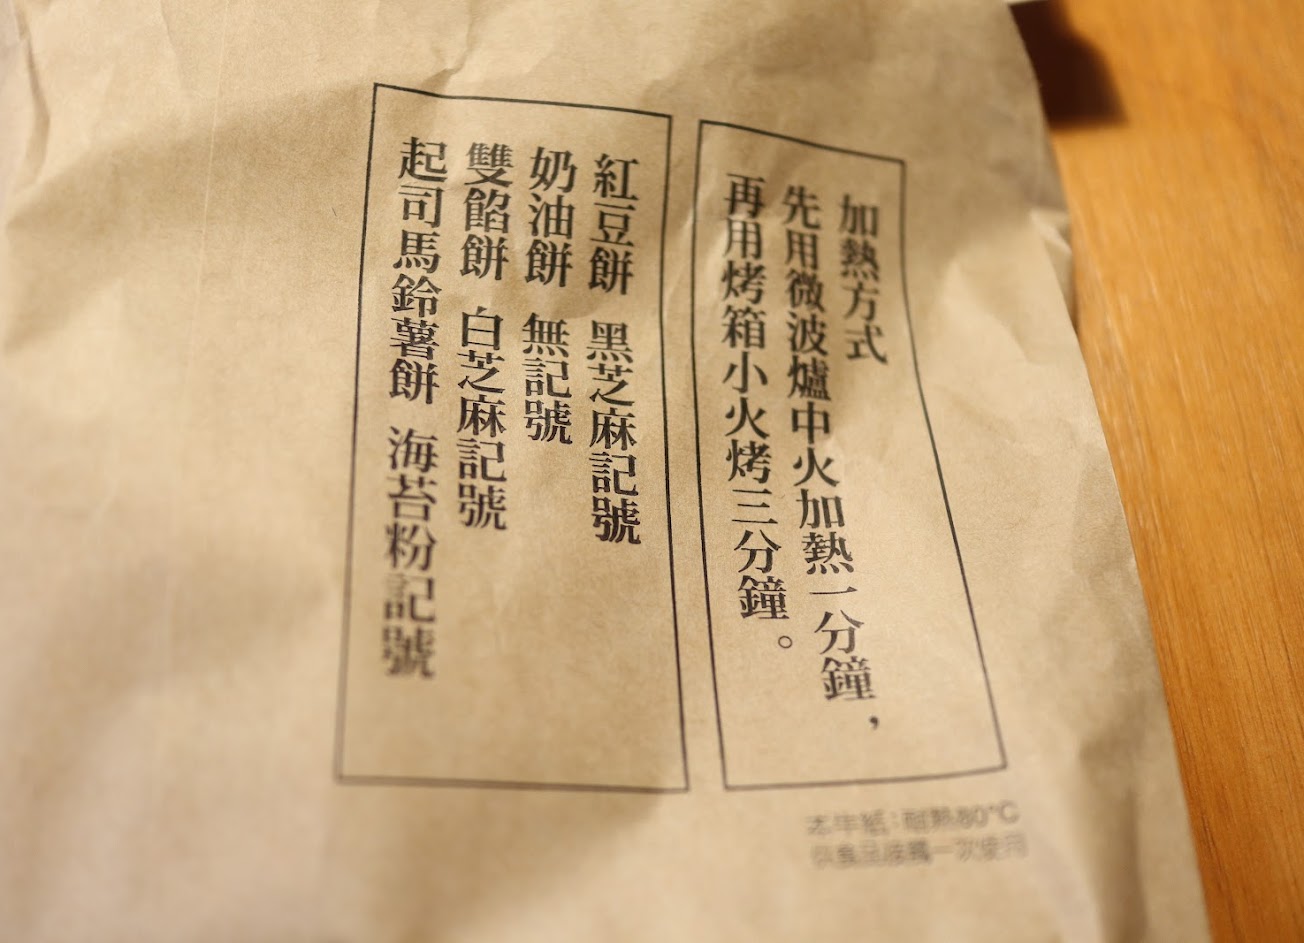 加熱方式
先用微波爐中火加熱一分鐘，
再用烤箱小火烤三分鐘。
紅豆餅 黑芝麻記號
奶油餅 無記號
雙餡餅 白芝麻記號
起司馬鈴薯餅 海苔粉記號
本牛紙：耐熱80°C
供食品接觸一次使用